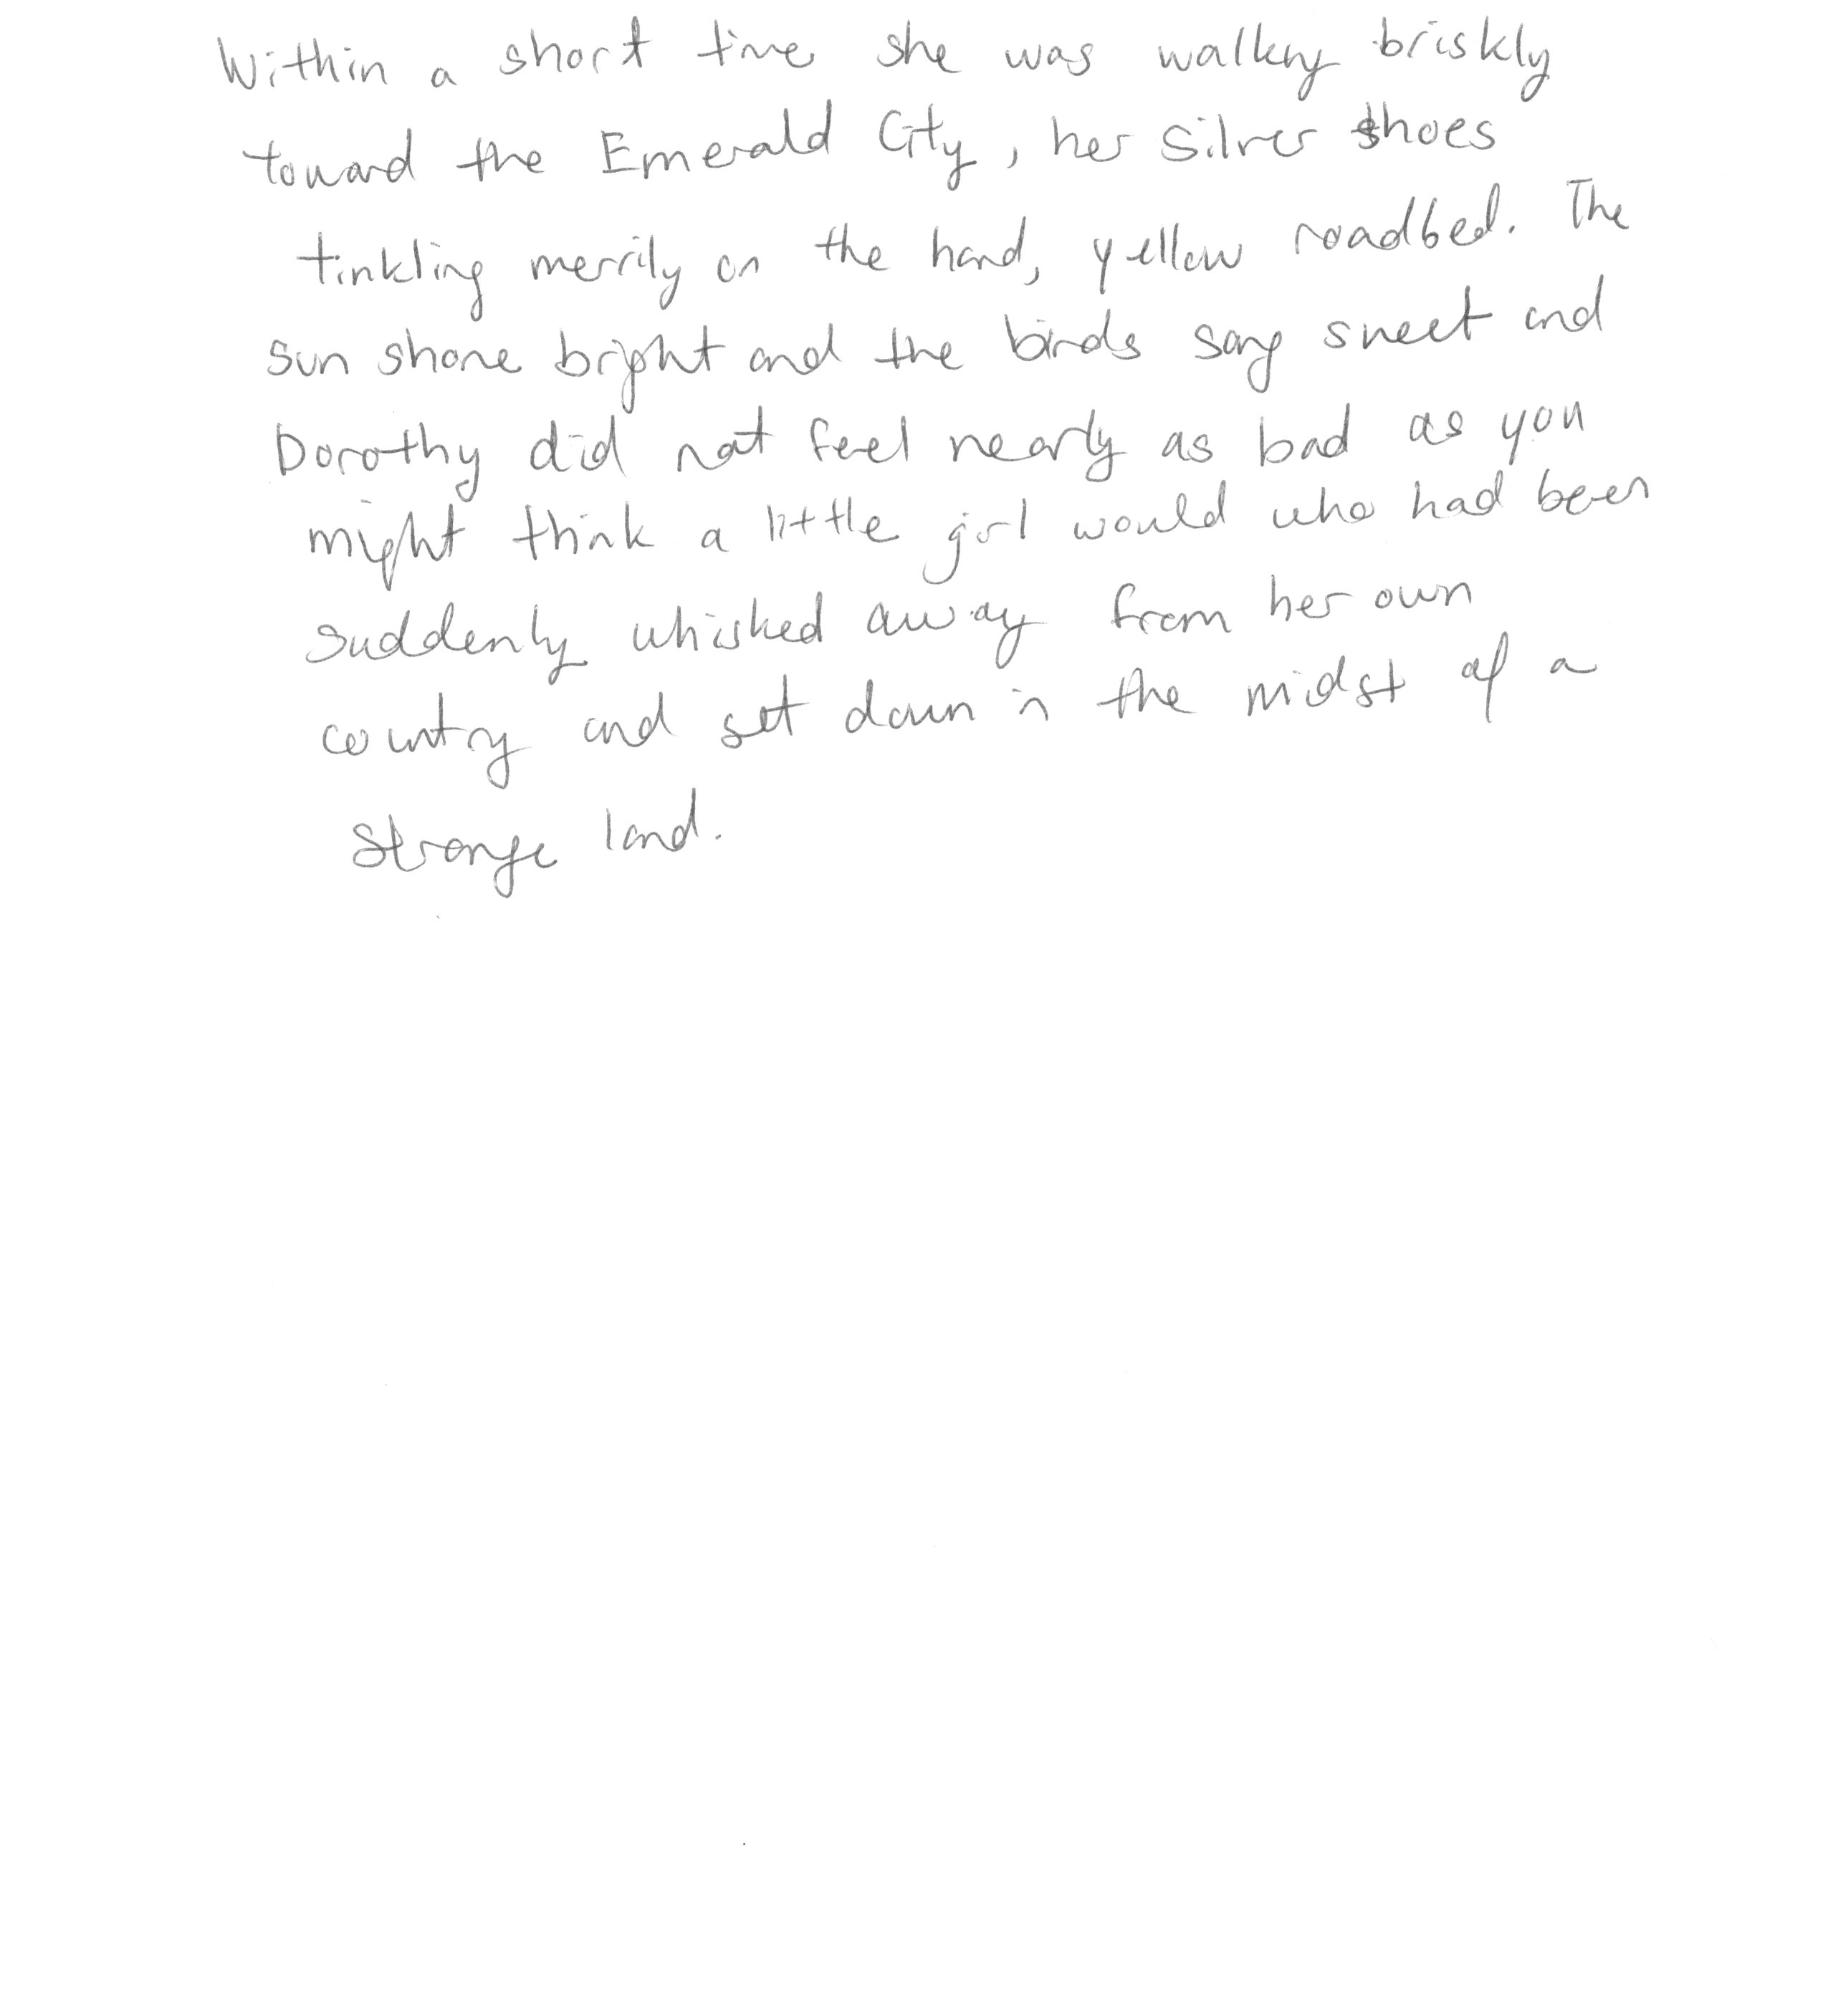 Within a short time she was walking briskly
toward the Emerald City, her Silver Shoes
tinkling merrily on the hard, yellow roadbed. The
sun shone bright and the birds sang sweet and
Dorothy did not feel nearly as bad as you
might think a little girl would who had been
suddenly whisked away from her own
country and set down in the midst of a
strange land.